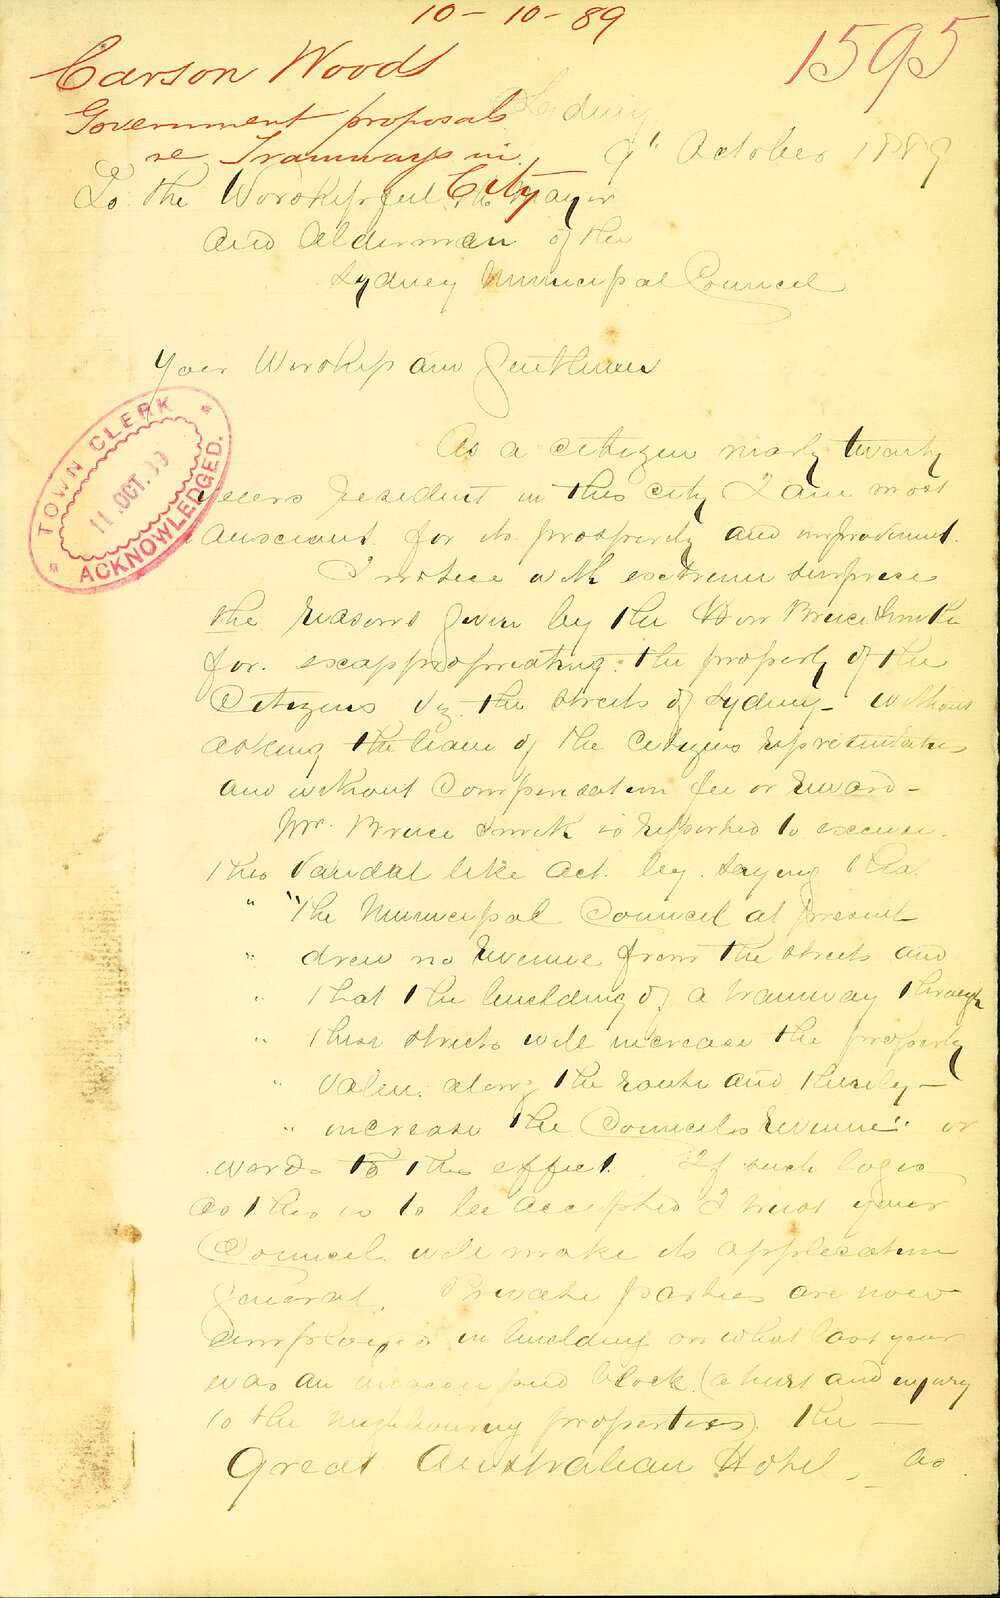 10-10-89
1595
Carson Woods
Government proposals
re Tramways in
City
Sydney
9th October 1889
To the Worshipful the Mayor
and Aldermen of the
Sydney Municipal Council
Your Worship and Gentlemen
TOWN CLERK
11 OCT. 89
ACKNOWLEDGED.
As a citizen nearly twenty
years resident in this city I am most
anxious for its prosperity and improvement.
I notice with extreme surprise
the reasons given by the Hon Bruce Smith
for exappropriating the property of the
Citizens viz the streets of Sydney - without
asking the leave of the Citizens representatives
and without Compensation fee or reward -
Mr. Bruce Smith is reported to excuse
this Vandal like act by saying that
" "The Municipal Council at present
" drew no revenue from the streets and
" that the building of a tramway through
" these streets will increase the property
" value along the route and thereby -
" increase the Councils revenue" or
words to this effect. If such logic
as this is to be accepted I trust your
Council will make its application
general. Private parties are now
employed in building on what last year
was an unoccupied block (a hurt and injury
to the neighbouring properties) the -
Great Australian Hotel, as